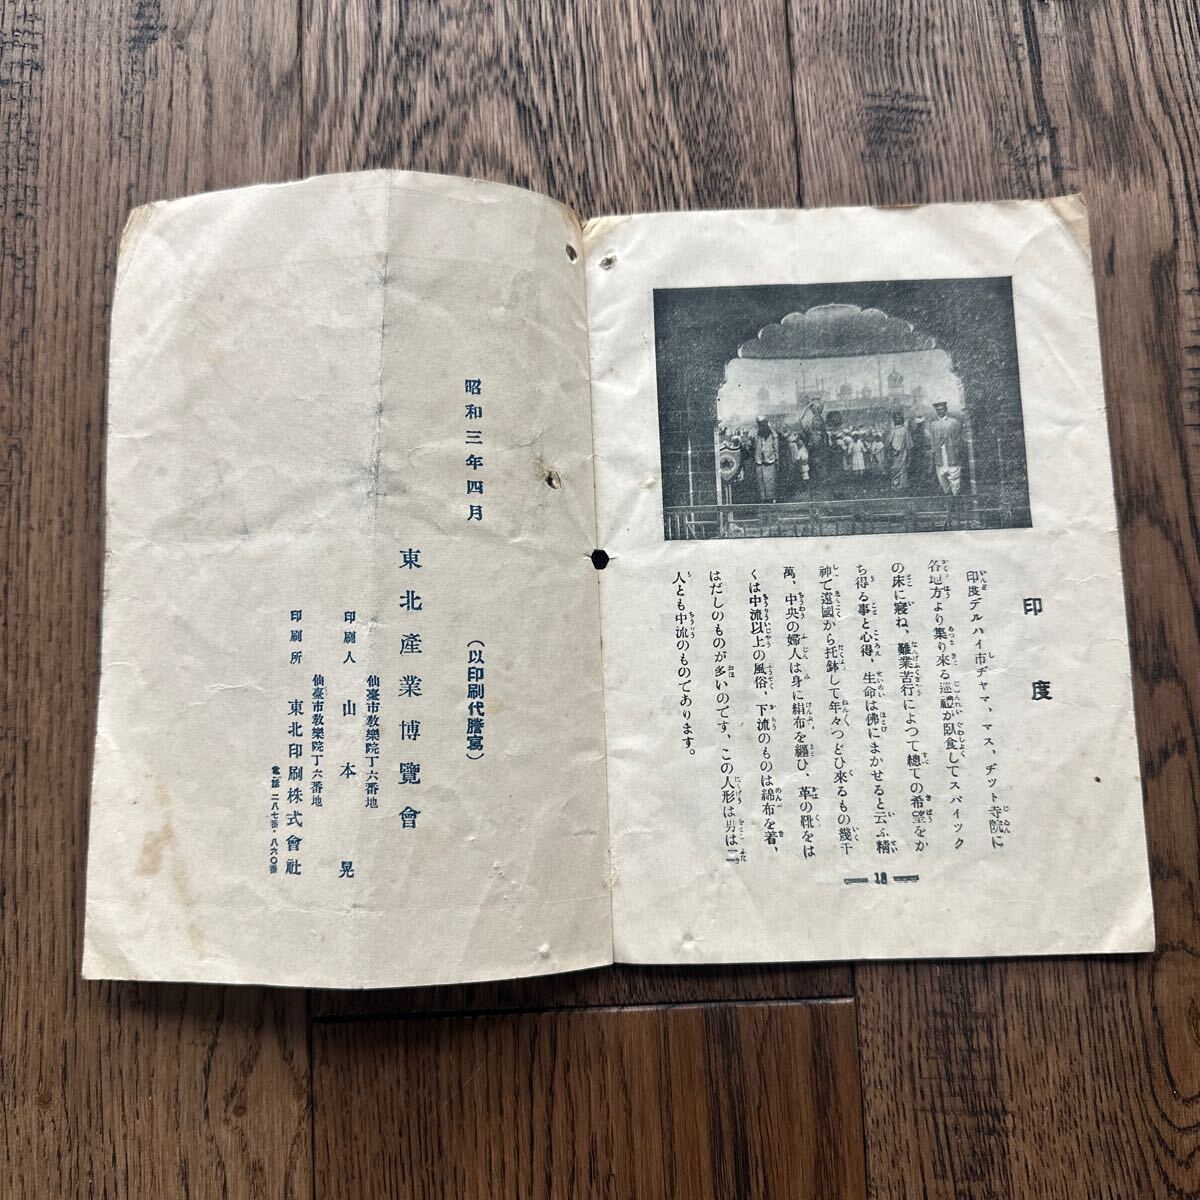 印度
印度デルハイ市ヂヤマ、マス、ヂツト寺院に
各地方より集り來る巡禮が臥食してスパイツク
の床に寢ね、難業苦行によつて總ての希望をか
ち得る事と心得、生命は佛にまかせると云ふ精
神で遠國から托鉢して年々つどひ來るもの幾千
萬、中央の婦人は身に絹布を纒ひ、革の靴をは
くは中流以上の風俗、下流のものは綿布を着、
はだしのものが多いのです、この人形は男は二
人とも中流のものであります。
18
昭和三年四月
(以印刷代謄寫)
東北產業博覽會
仙臺市教樂院丁六番地
印刷人 山本晃
仙臺市教樂院丁六番地
印刷所 東北印刷株式會社
電話 二八七番・八六〇番